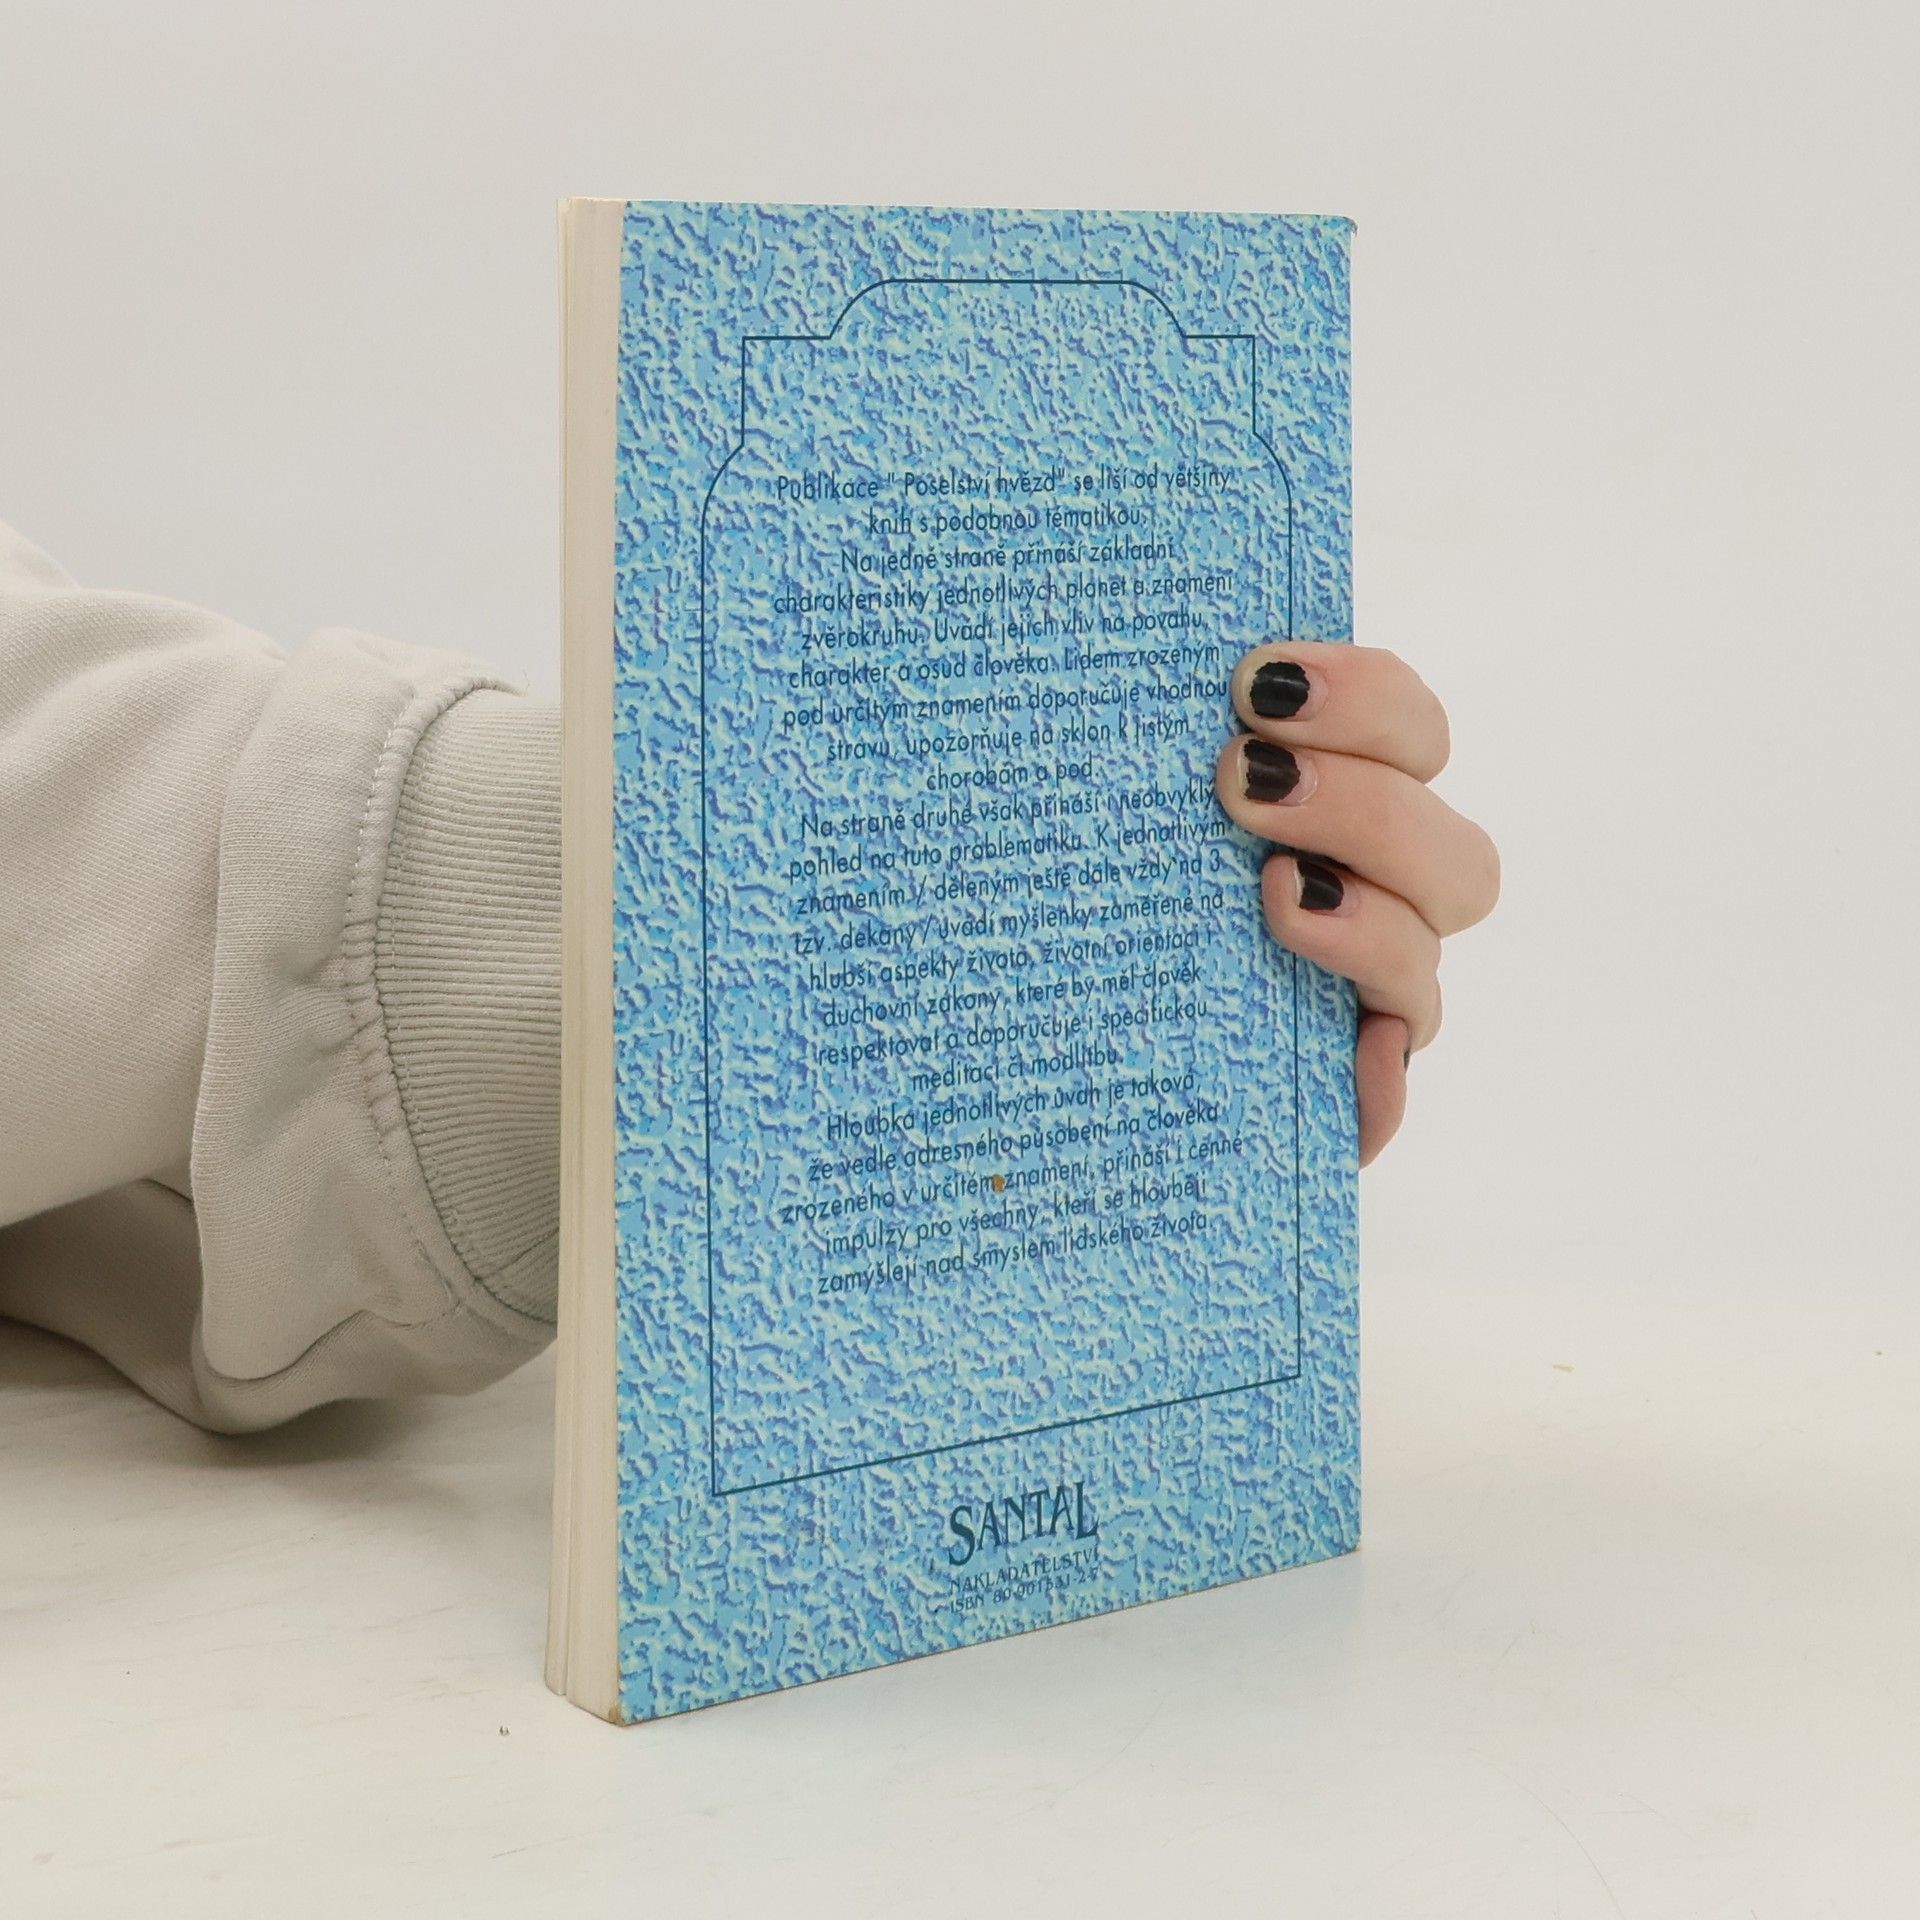 Publikace " Poselství hvězd" se liší od většiny
knih s podobnou tématikou.
Na jedné straně přináší základní
charakteristiky jednotlivých planet a znamení
zvěrokruhu. Uvádí jejich vliv na povahu,
charakter a osud člověka. Lidem zrozeným
pod určitým znamením doporučuje vhodnou
stravu, upozorňuje na sklon k jistým
chorobám a pod.
Na straně druhé však přináší i neobvyklý
pohled na tuto problematiku. K jednotlivým
znamením / děleným ještě dále vždy na 3
tzv. dekany / uvádí myšlenky zaměřené na
hlubší aspekty života, životní orientaci i
duchovní zákony, které by měl člověk
respektovat a doporučuje i specifickou
meditaci či modlitbu.
Hloubka jednotlivých úvah je taková,
že vedle adresného působení na člověka
zrozeného v určitém znamení, přináší i cenné
impulzy pro všechny, kteří se hlouběji
zamýšlejí nad smyslem lidského života.
SANTAL
NAKLADATELSTVÍ
ISBN